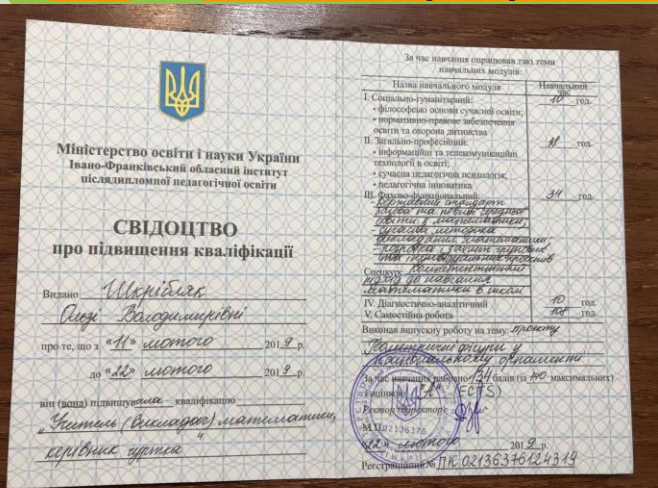 Міністерство освіти і науки України
Івано-Франківський обласний інститут
післядипломної педагогічної освіти
СВІДОЦТВО
про підвищення кваліфікації
Видано Шкрібляк
Ользі Володимирівні
про те, що з "11" лютого 2019 р.
до "22" лютого 2019 р.
він (вона) підвищувала кваліфікацію
"Учитель (викладач) математики,
керівник гуртка"
За час навчання опрацював такі теми
навчальних модулів:
Назва навчального модуля Навчальний
час
І. Соціально-гуманітарний: 10 год.
• філософські основи сучасної освіти;
• нормативно-правове забезпечення
освіти та охорона дитинства
ІІ. Загально-професійний: 18 год.
• інформаційні та телекомунікаційні
технології в освіті;
• сучасна педагогічна психологія;
• педагогічна інноватика
ІІІ. Фахово-функціональний: 34 год.
- Державний стандарт
базової та повної середньої
освіти з математики;
- сучасна методика
викладання математики
- розробка і захист групових
та індивідуальних проєктів
Спецкурс Компетентнісний
підхід до навчання
математики в школі
IV. Діагностично-аналітичний 10 год.
V. Самостійна робота 108 год.
Виконав випускну роботу на тему: проєкту
Геометричні фігури у
національному орнаменті
За час навчання набрано 134 балів (із максимальних)
і оцінкою "А" (ECTS)
Ректор (директор)
М.П. 02136376
"22" лютого 2019 р.
Реєстраційний № ПК 02136376124319